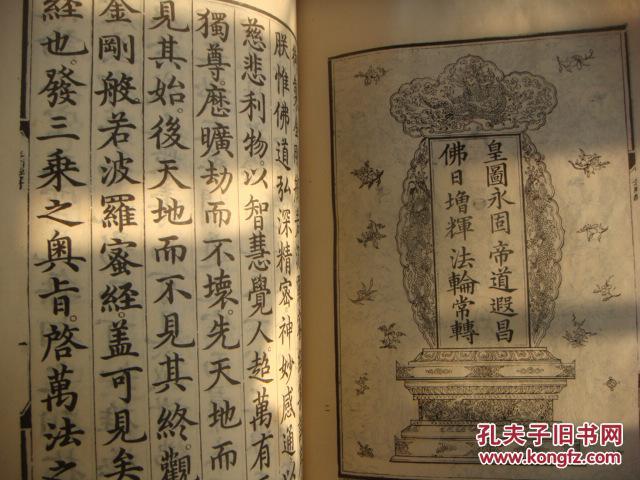 皇圖永固帝道遐昌
佛日增輝法輪常轉
朕惟佛道弘深精密神妙感通以
慈悲利物以智慧覺人超萬有而
獨尊歷曠劫而不壞先天地而
見其始後天地而不見其終觀
金剛般若波羅蜜經蓋可見矣
經也發三乘之奧旨啓萬法之
孔夫子旧书网
www.kongfz.com